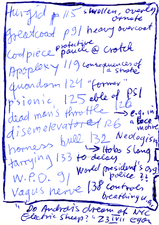 turgid p 115 - swollen, overly ornate
Greatcoat p 91 heavy overcoat
Codpiece protective police @ Crotch
Apoplexy 119 consequences of a stroke
quondam 124 "former"
psionic 125 able of PSI
dead man's throttle
disemelevatored 126
harness bull 132 Neologism
tarrying 133 to delay
W.P.O. 91 World president's org
Vagus nerve 138 controls breathing
"Do Androids dream of
Electric Sheep?"